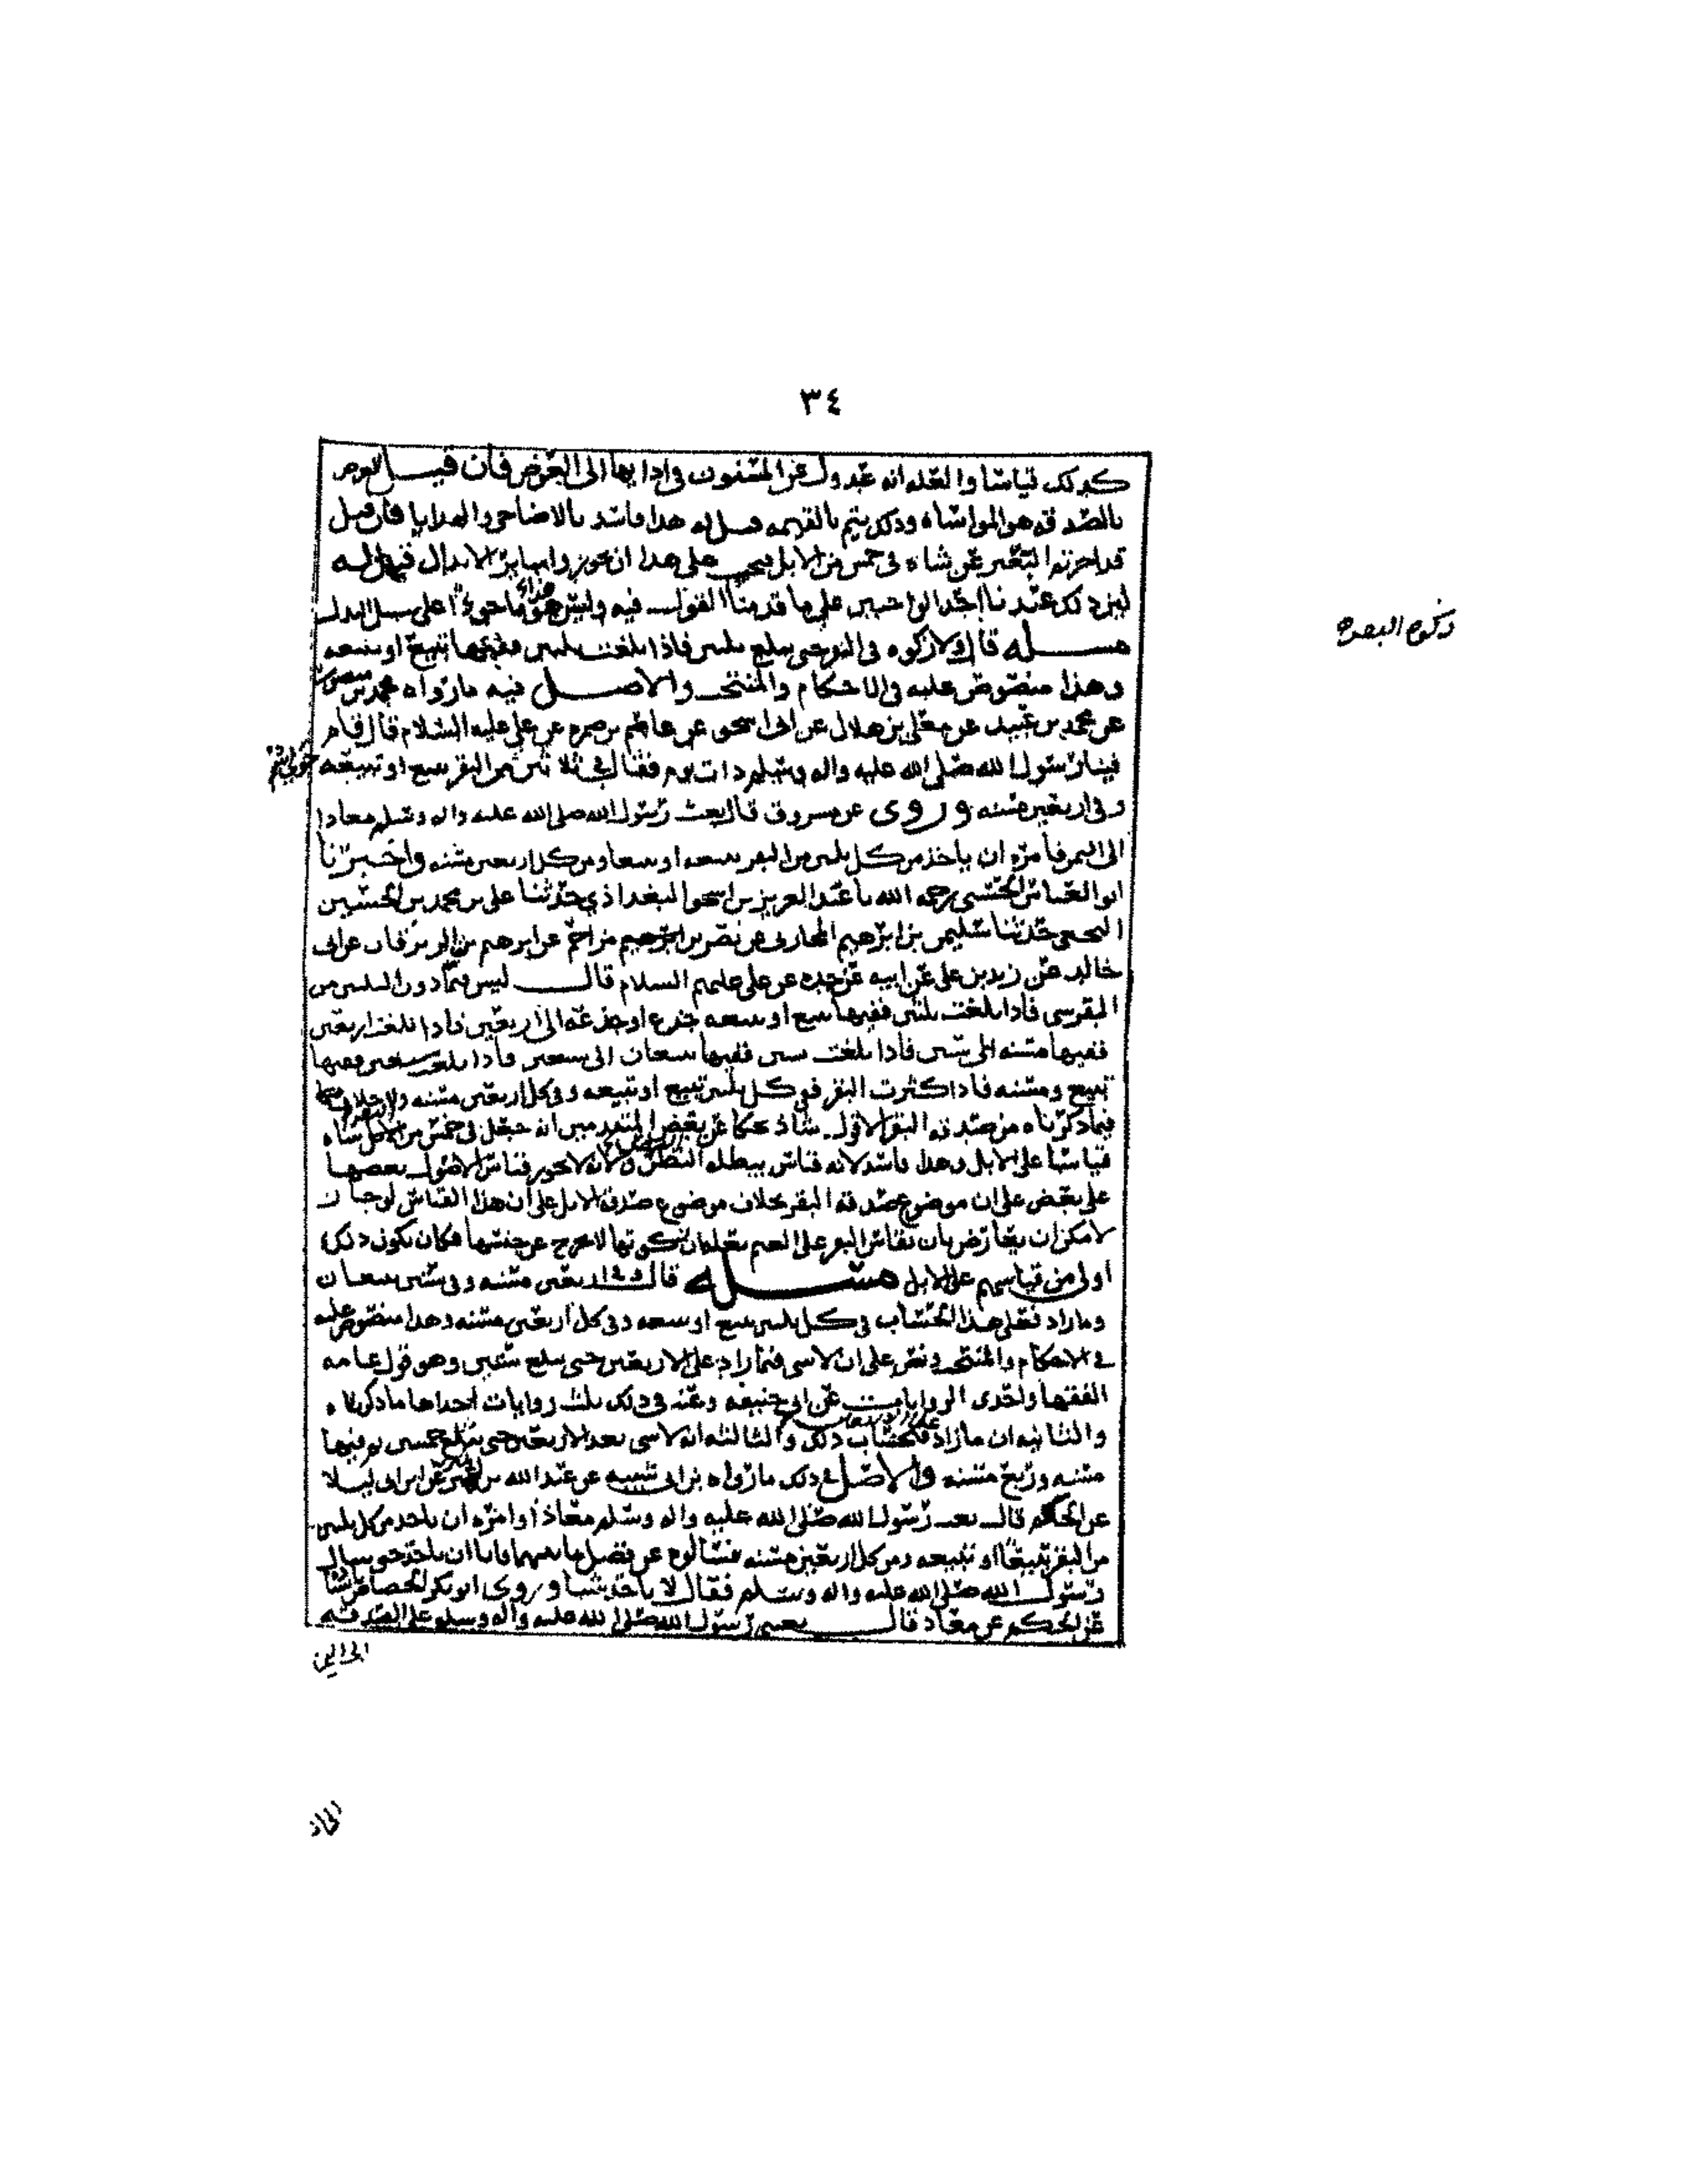 ٣٤
كذلك قياسا والعله انه عدول عن المسنون في ادايها الى العوض فان قيل الغرض
بالصدقه هو المواساه وذلك يتم بالقيمه قيل له هذا فاسد بالاضاحي والهدايا فان قيل
قد اجزتم البعير عن شاه في خمس من الابل فيجب على هذا ان تجوزوا سائر الابدال قيل له
ليس ذلك عندنا احد الواجبين على ما قدمنا القول فيه وليس هو ماخوذا على سبيل البدل
زكوه البقر
مسله قال ولا زكوه في البقر حتى تبلغ ثلثين فاذا بلغت ثلثين ففيها تبيع او تبيعه
وهذا منصوص عليه في الاحكام والمنتخب والاصل فيه ما رواه محمد بن منصور
عن محمد بن عبيد عن معلى بن هلال عن ابي اسحق عن عاصم بن ضمره عن علي عليه السلام قال قام
فينا رسول الله صلى الله عليه واله وسلم ذات يوم فقال في ثلاثين من البقر تبيع او تبيعه
وفي اربعين مسنه وروى عن مسروق قال بعث رسول الله صلى الله عليه واله وسلم معاذا
الى اليمن فامره ان ياخذ من كل ثلثين من البقر تبيعه او تبيعا ومن كل اربعين مسنه واخبرنا
ابو العباس الحسني رحمه الله نا عبد العزيز بن اسحق البغداذي حدثنا علي بن محمد بن الحسين
النخعي حدثنا سليمن بن ابرهيم المحاربي عن نصر بن مزاحم عن ابرهيم بن الزبرقان عن ابي
خالد عن زيد بن علي عن ابيه عن جده عن علي عليهم السلام قال ليس فيما دون الثلثين من
البقر شي فاذا بلغت ثلثين ففيها تبيع او تبيعه جذع او جذعه الى اربعين فاذا بلغت اربعين
ففيها مسنه الى ستين فاذا بلغت ستين ففيها تبيعان الى سبعين فاذا بلغت سبعين ففيها
تبيع ومسنه فاذا كثرت البقر ففي كل ثلثين تبيع او تبيعه وفي كل اربعين مسنه ولا خلاف
فيما ذكرناه من صدقه البقر الا قول شاذ يحكا عن بعض المتقدمين انه جعل في خمس من البقر شاه
قياسا على الابل وهذا فاسد لانه قياس يبطله النص ولانه لا يجوز قياس الاصول بعضها
على بعض على ان موضوع صدقه البقر بخلاف موضوع صدقه الابل على ان هذا القياس لو جاز
لامكن ان يعارض بان تقاس البقر على الغنم بعله ان زكوتها لا تخرج عن جنسها فكان يكون ذلك
اولى من قياسهم على الابل مسله قال وفي اربعين مسنه وفي ستين تبيعان
وما زاد فعلى هذا الحساب في كل ثلثين تبيع او تبيعه وفي كل اربعين مسنه وهذا منصوص عليه
في الاحكام والمنتخب ونص على ان لا شي فيما زاد على الاربعين حتى تبلغ ستين وهو قول عامه
الفقها واحدى الروايات عن ابي حنيفه وعنه في ذلك ثلث روايات احداها ما ذكرناه
والثانيه ان ما زاد على الاربعين فبحساب ذلك والثالثه انه لا شي بعد الاربعين حتى تبلغ خمسين ثم فيها
مسنه وربع مسنه والاصل في ذلك ما رواه بن ابي شيبه عن عبد الله بن نمير عن ابن ابي ليلا
عن الحكم قال بعث رسول الله صلى الله عليه واله وسلم معاذا وامره ان ياخذ من كل ثلثين
من البقر تبيعا او تبيعه ومن كل اربعين مسنه فسالوه عن فضل ما بينهما فابا ان ياخذ حتى سال
رسول الله صلى الله عليه واله وسلم فقال لا تاخذ شيا وروى ابو بكر الجصاص
عن الحكم عن معاذ قال بعثني رسول الله صلى الله عليه واله وسلم على الصدقه
الى اليمن